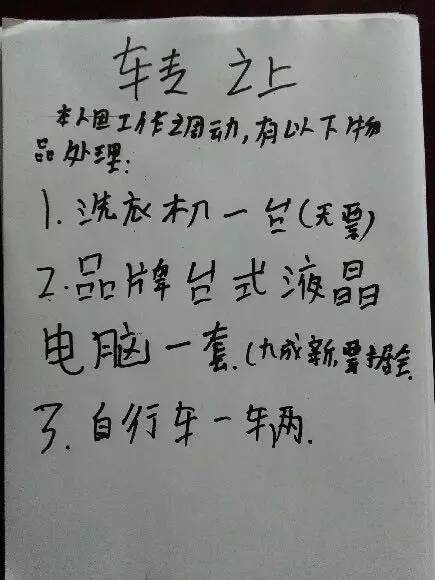 转 让
本人因工作调动,有以下物
品处理:
1.洗衣机一台(无票)
2.品牌台式液晶
电脑一套.(九成新,票据全
3.自行车一辆.